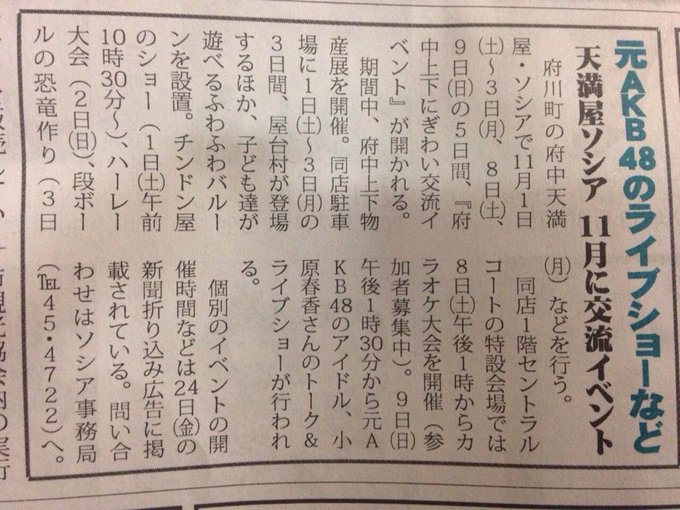 元AKB48のライブショーなど
天満屋ソシア 11月に交流イベント
府川町の府中天満
屋・ソシアで11月1日
㈯〜3日㈪、8日㈯、
9日㈰の5日間、『府
中上下にぎわい交流イ
ベント』が開かれる。
期間中、府中上下物
産展を開催。同店駐車
場に1日㈯〜3日㈪の
3日間、屋台村が登場
するほか、子ども達が
遊べるふわふわバルー
ンを設置。チンドン屋
のショー（1日㈯午前
10時30分〜）、ハーレー
大会（2日㈰）、段ボー
ルの恐竜作り（3日
㈪）などを行う。
同店1階セントラル
コートの特設会場では
8日㈯午後1時からカ
ラオケ大会を開催（参
加者募集中）。9日㈰
午後1時30分から元A
KB48のアイドル、小
原春香さんのトーク&
ライブショーが行われ
る。
個別のイベントの開
催時間などは24日㈮の
新聞折り込み広告に掲
載されている。問い合
わせはソシア事務局
（℡45・4722）へ。